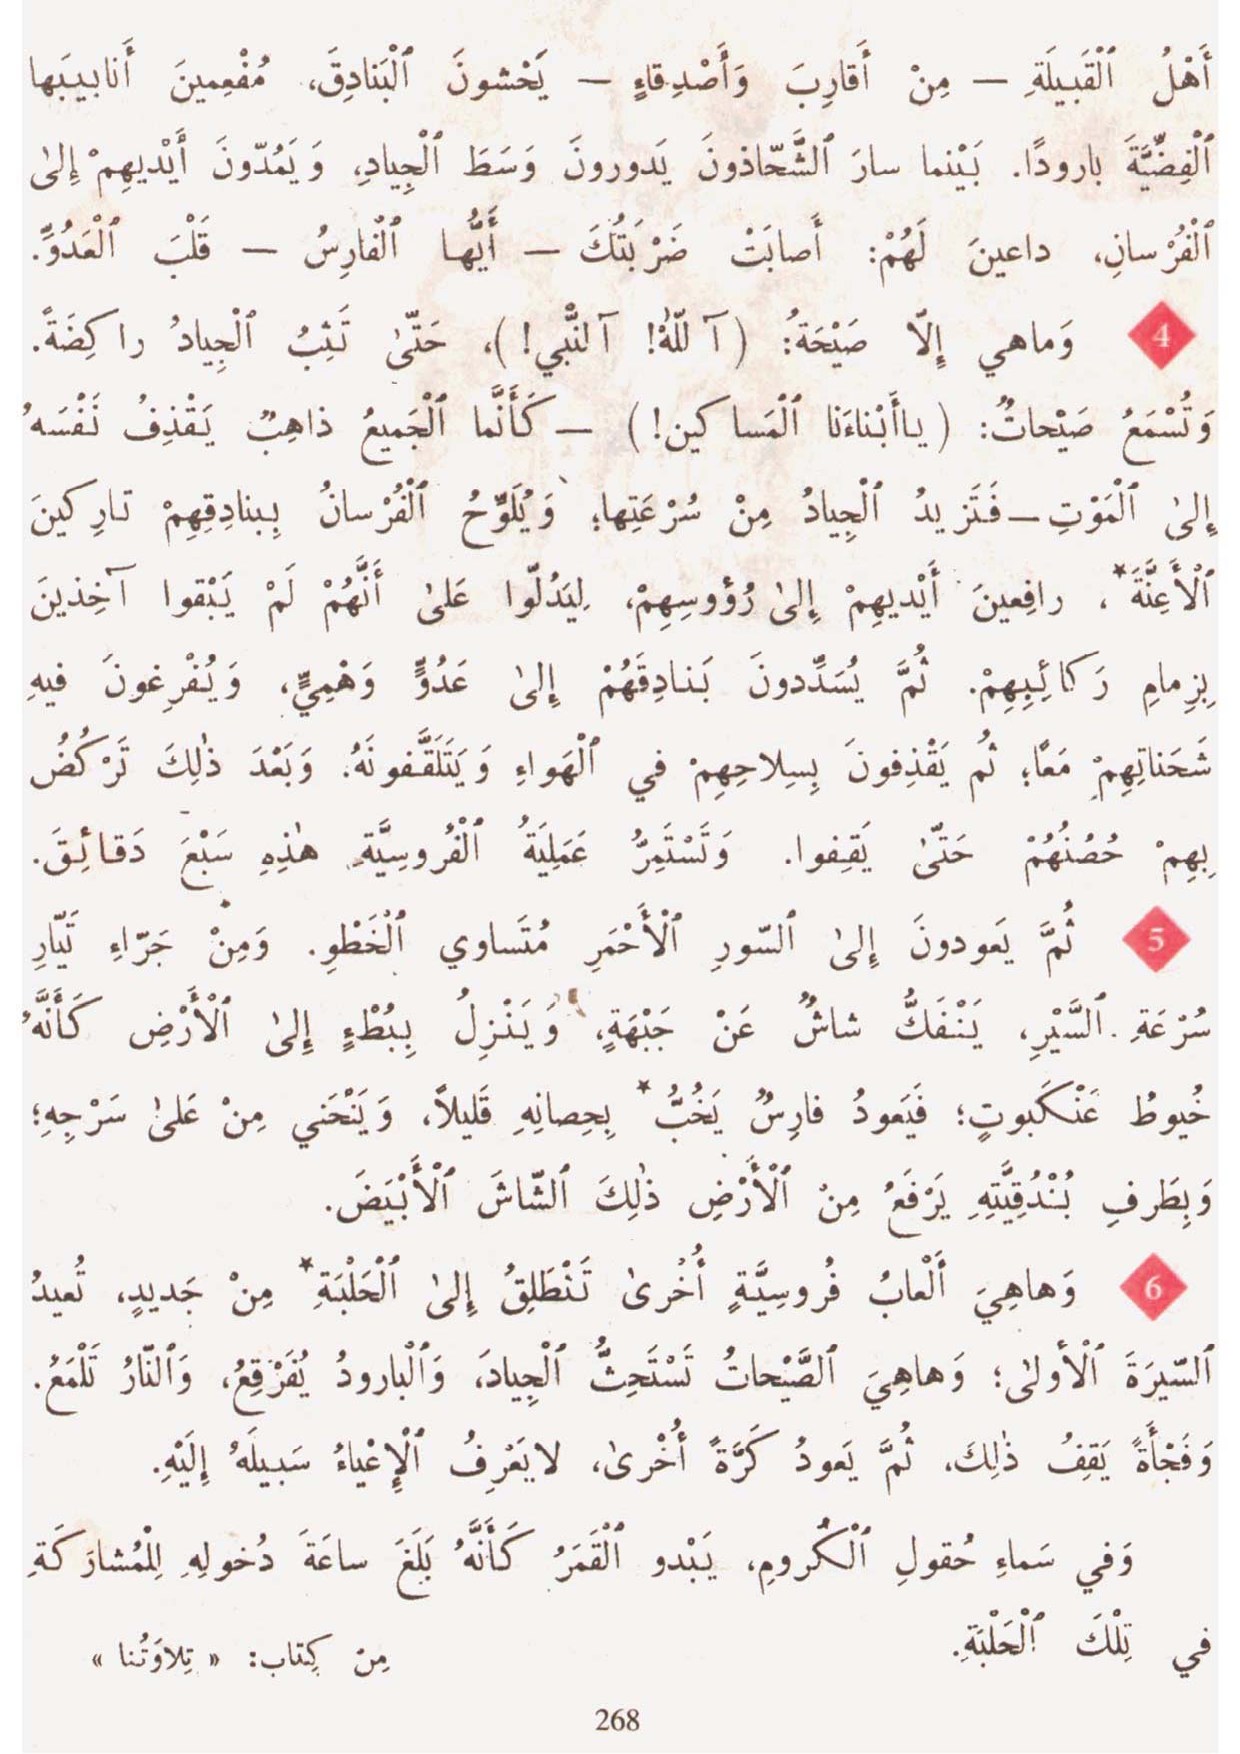 أَهْلُ ٱلْقَبيلَةِ – مِنْ أَقارِبَ وَأَصْدِقاءٍ – يَحْشونَ ٱلْبَنادِقَ، مُفْعِمينَ أَنابيبَها
ٱلْفِضِّيَّةَ بارودًا. بَيْنما سارَ ٱلشَّحّاذونَ يَدورونَ وَسَطَ ٱلْجِيادِ، وَيَمُدّونَ أَيْديهِمْ إِلىٰ
ٱلْفُرْسانِ، داعينَ لَهُمْ: أَصابَتْ ضَرْبَتُكَ – أَيُّها ٱلْفارِسُ – قَلْبَ ٱلْعَدُوِّ.
4 وَماهي إِلّا صَيْحَةُ: (آللّٰهْ! آلنَّبي!)، حَتّىٰ تَثِبُ ٱلْجِيادُ راكِضَةً.
وَتُسْمَعُ صَيْحاتٌ: (ياأَبْناءَنا ٱلْمَساكين!) – كَأَنَّما ٱلْجَميعُ ذاهِبٌ يَقْذِفُ نَفْسَهُ
إِلىٰ ٱلْمَوْتِ – فَتَزيدُ ٱلْجِيادُ مِنْ سُرْعَتِها؛ وَيُلَوِّحُ ٱلْفُرْسانُ بِبنادِقِهِمْ تارِكينَ
ٱلْأَعِنَّةَ*، رافِعينَ أَيْديهِمْ إِلىٰ رُؤوسِهِمْ، لِيَدُلّوا عَلىٰ أَنَّهُمْ لَمْ يَبْقوا آخِذينَ
بِزِمامِ رَكائِبِهِمْ. ثُمَّ يُسَدِّدونَ بَنادِقَهُمْ إِلىٰ عَدُوٍّ وَهْمِيٍّ، وَيُفْرِغونَ فيهِ
شَحَناتِهِمْ مَعًا؛ ثُم يَقْذِفونَ بِسِلاحِهِمْ في ٱلْهَواءِ وَيَتَلَقَّفونَهُ. وَبَعْدَ ذٰلِكَ تَرْكُضُ
بِهِمْ حُصُنُهُمْ حَتّىٰ يَقِفوا. وَتَسْتَمِرُّ عَمَلِيَةُ ٱلْفُروسِيَّةِ هٰذِهِ سَبْعَ دَقائِقَ.
5 ثُمَّ يَعودونَ إِلىٰ ٱلسّورِ ٱلْأَحْمَرِ مُتَساوي ٱلْخَطْوِ. وَمِنْ جَرّاءِ تَيّارِ
سُرْعَةِ ٱلسَّيْرِ، يَنْفَكُّ شاشٌ عَنْ جَبْهَةٍ، وَيَنْزِلُ بِبُطْءٍ إِلىٰ ٱلْأَرْضِ كَأَنَّهُ
خُيوطُ عَنْكَبوتٍ؛ فَيَعودُ فارِسٌ يَخُبُّ* بِحِصانِهِ قَليلاً، وَيَنْحَني مِنْ عَلىٰ سَرْجِهِ؛
وَبِطَرفِ بُنْدُقِيَّتِهِ يَرْفَعُ مِنْ ٱلْأَرْضِ ذٰلِكَ ٱلشّاشَ ٱلْأَبْيَضَ.
6 وَهاهِيَ أَلْعابُ فُروسِيَّةٍ أُخْرىٰ تَنْطَلِقُ إِلىٰ ٱلْحَلْبَةِ* مِنْ جَديدٍ، تُعيدُ
ٱلسّيرَةَ ٱلْأولىٰ؛ وَهاهِيَ ٱلصَّيْحاتُ تَسْتَحِثُّ ٱلْجِيادَ، وَٱلْبارودُ يُفَرْقِعُ، وَٱلنّارُ تَلْمَعُ.
وَفَجْأَةً يَقِفُ ذٰلِكَ، ثُمَّ يَعودُ كَرَّةً أُخْرىٰ، لايَعْرِفُ ٱلْإِعْياءُ سَبيلَهُ إِلَيْهِ.
وَفي سَماءِ حُقولِ ٱلْكُرومِ، يَبْدو ٱلْقَمَرُ كَأَنَّهُ بَلَغَ ساعَةَ دُخولِهِ لِلْمُشارَكَةِ
في تِلْكَ ٱلْحَلْبَةِ.
مِنْ كِتاب: « تِلاوَتُنا »
268